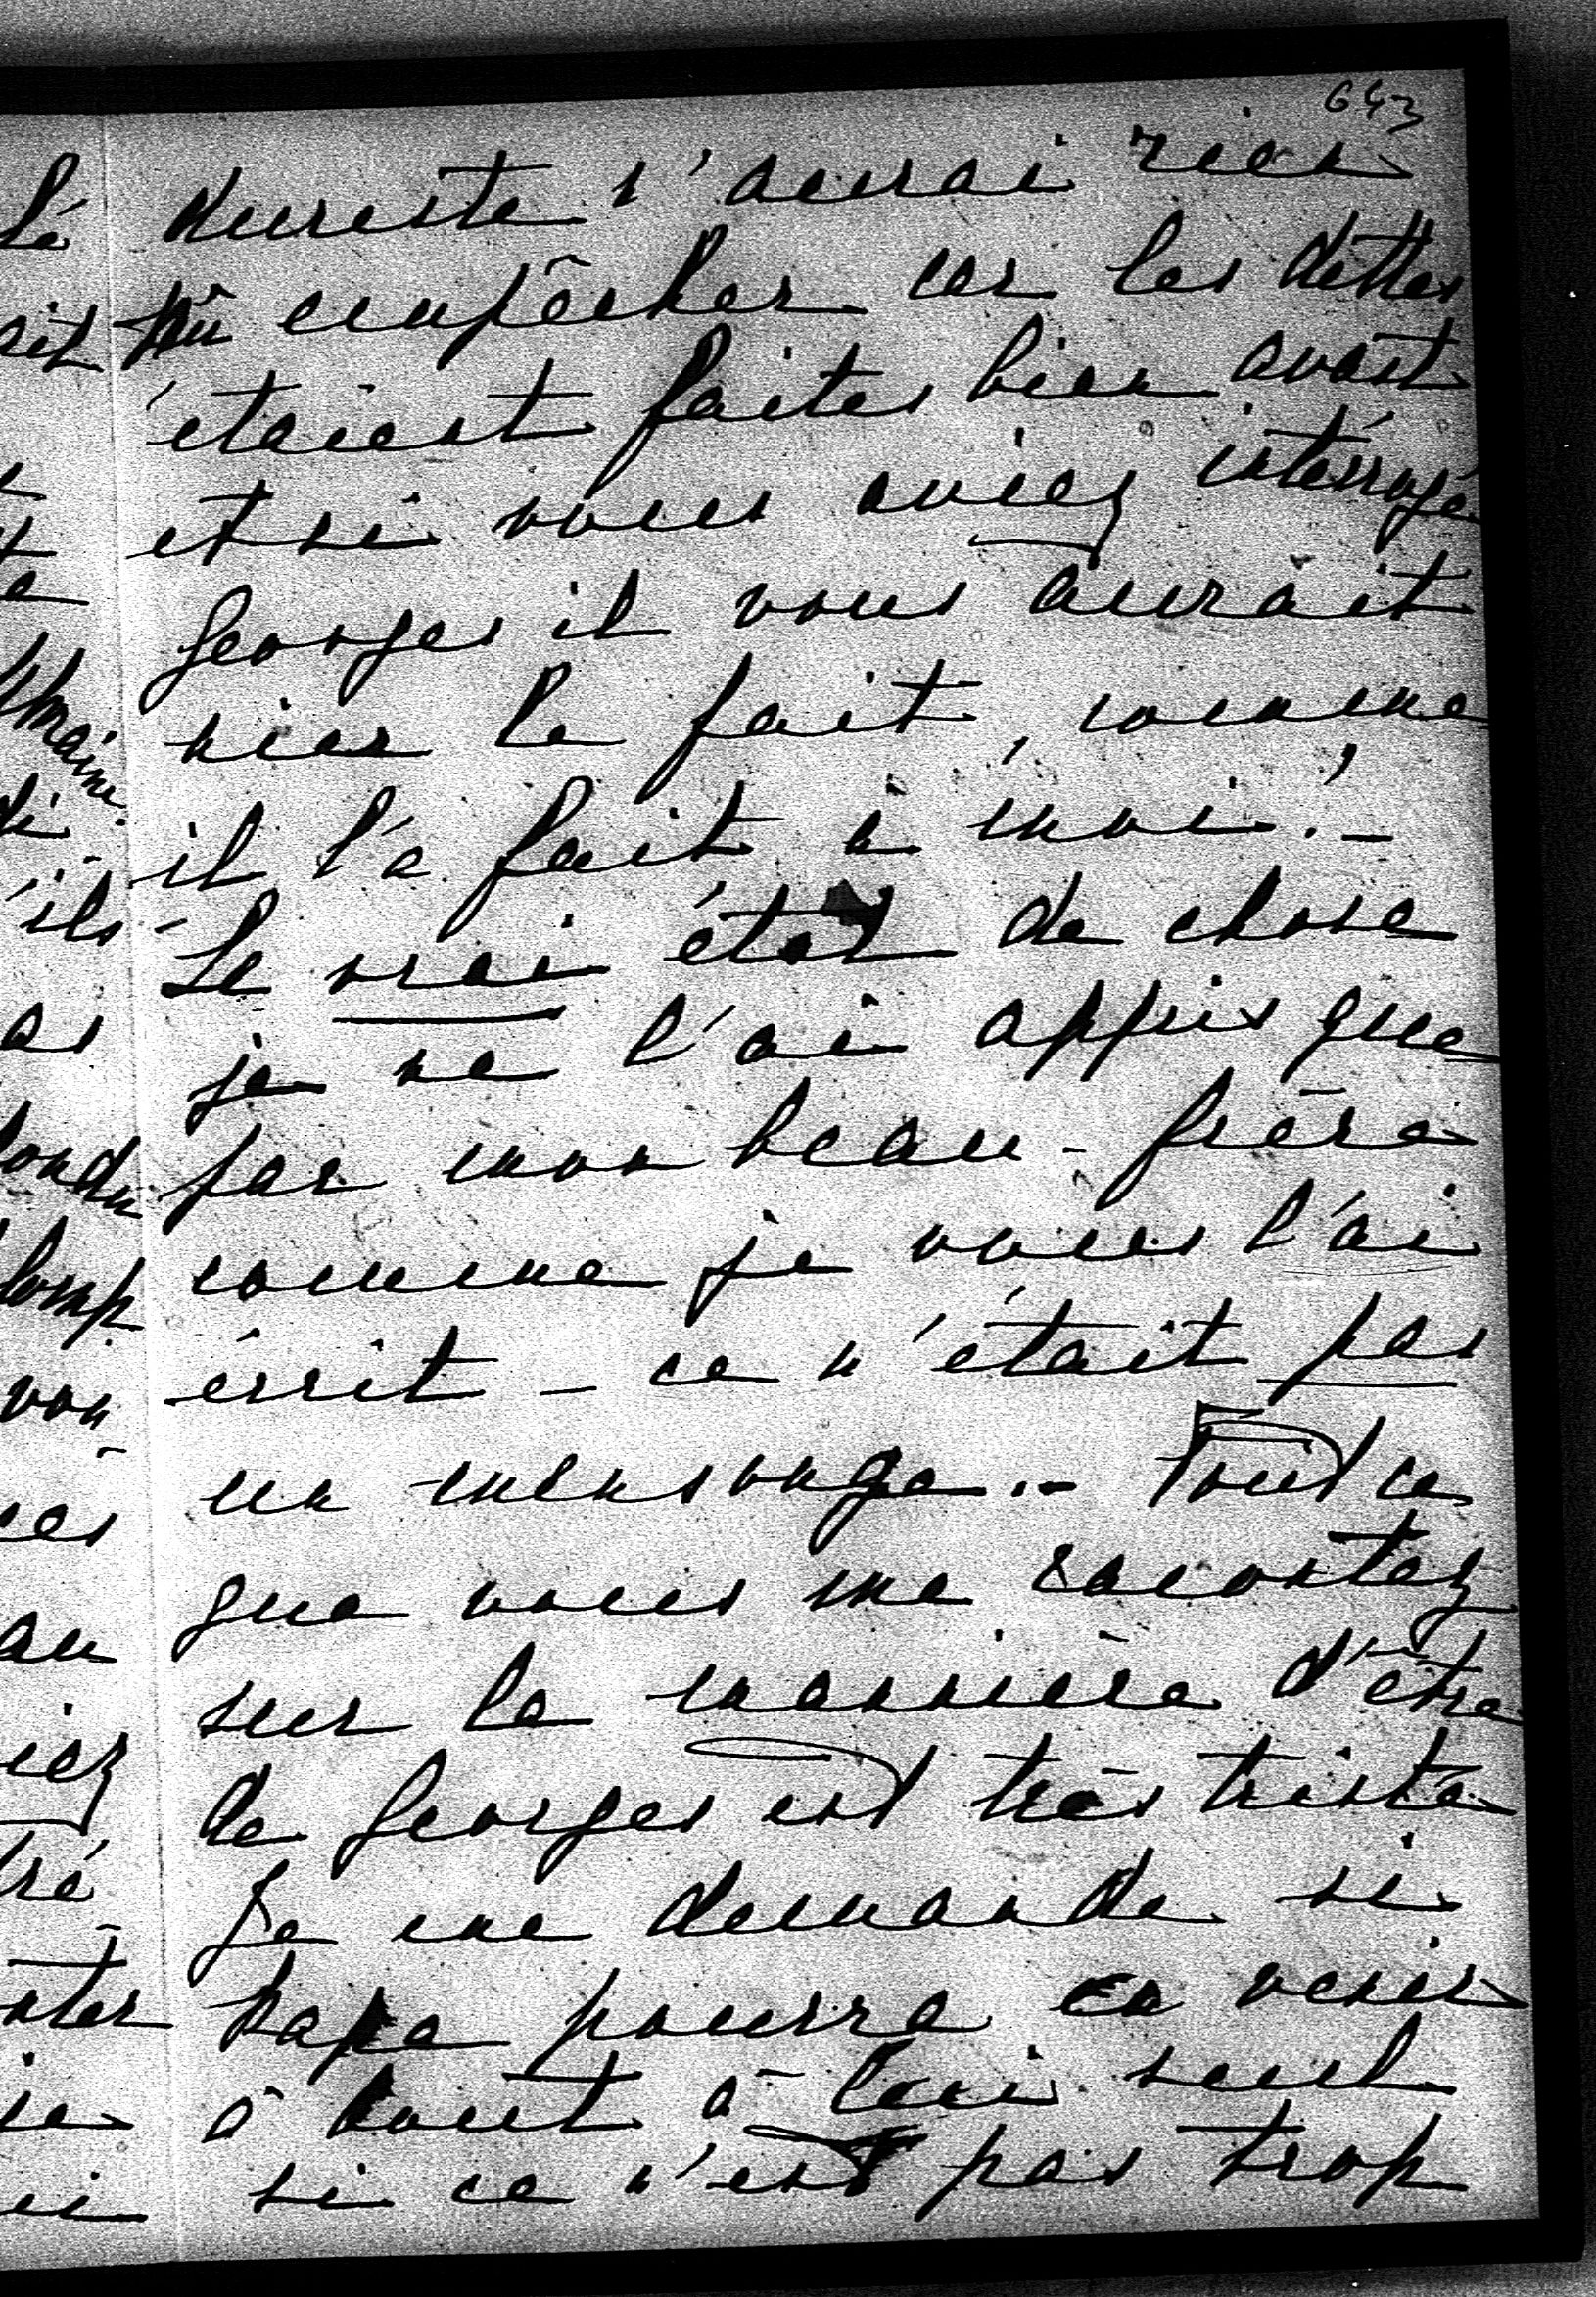 643
dureste n'aurai rien
pû empêcher car les dettes
étaient faites bien avant
et si vous aviez interrogé
Georges il vous aurait
nier le fait, comme
il l'a fait à moi. –
Le vrai état de chose
je ne l'ai appris que
par mon beau-frère
comme je vous l'ai
écrit – ce n'était pas
un mensonge. – Tout ce
que vous me racontez
sur la mannière d'être
de Georges est très triste
Je me demande si
Papa pourra en venir
à bout à lui seul
si ce n'est pas trop